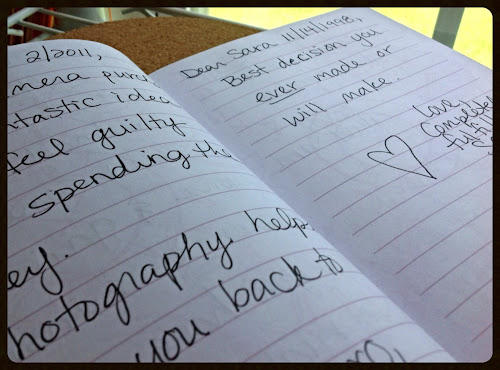 2/2011,
mera purch
ntastic idea
feel guilty
spending th
ey.
hotography help
you back to
Dear Sara 11/14/1998,
Best decision you
ever made or
will make.
Love,
Complete